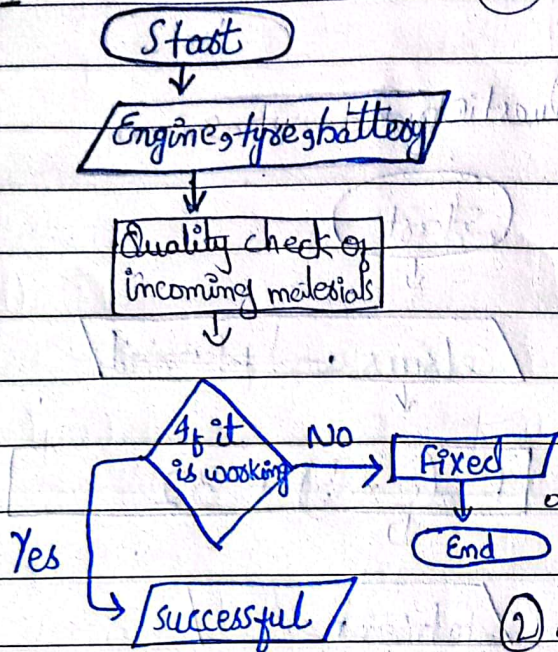 Start
Engine, tyre, battery
Quality check of
incoming materials
If it
is working
NO
Fixed
End
Yes
successful
2